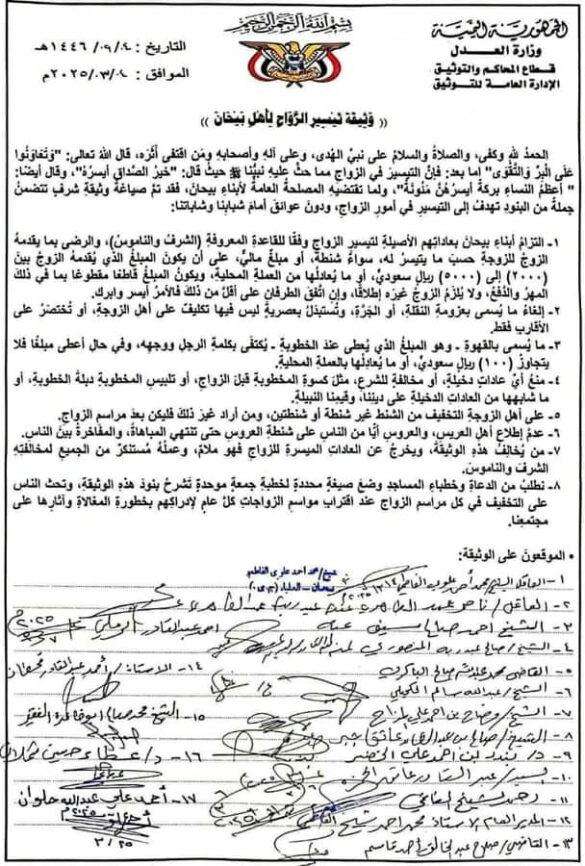 بِسْمِ اللهِ الرَّحْمٰنِ الرَّحِيْمِ
الجمهورية اليمنية
وزارة العدل
قطاع المحاكم والتوثيق
الإدارة العامة للتوثيق
التاريخ : ٤ /٠٩ /١٤٤٦هـ
الموافق : ٤ /٣ /٢٠٢٥م
« وثيقة تيسير الزواج لأهل بيحان »
الحمدُ للهِ وكفى، والصلاةُ والسلامُ على نبيِّ الهدى، وعلى آلهِ وأصحابهِ ومَن اقتفى أثَرَه، قال اللهُ تعالى: "وَتَعَاوَنُوا
عَلَى الْبِرِّ وَالتَّقْوَى" اما بعد: فإنَّ التيسيرَ في الزواجِ مما حثَّ عليه نبيُّنا ﷺ حيثُ قال: "خيرُ الصَّداقِ أيسرُهُ"، وقال أيضا:
"أعظمُ النساءِ بركةً أيسرُهُنَّ مَئُونةً"، ولما تقتضيهِ المصلحةُ العامةُ لأبناءِ بيحانَ، فقد تمَّ صياغةُ وثيقةِ شرفٍ تتضمنُ
جملةً من البنودِ تهدفُ إلى التيسيرِ في أمورِ الزواجِ، ودونَ عوائقَ أمامَ شبابِنا وشاباتِنا:
١- التزامُ أبناءِ بيحانَ بعاداتِهم الأصيلةِ لتيسيرِ الزواجِ وفقًا للقاعدةِ المعروفةِ (الشرفُ والناموسُ)، والرضى بما يقدمهُ
الزوجُ للزوجةِ حسبَ ما يتيسرُ له، سواءٌ شنطة، أو مبلغٌ ماليٌّ، على أن يكونَ المبلغُ الذي يُقدمهُ الزوجُ بينَ
(٢٠٠٠) إلى (٥٠٠٠) ريالٍ سعوديٍّ، أو ما يُعادلُها من العملةِ المحليةِ، ويكونُ المبلغُ قاطعًا مقطوعًا بما في ذلكَ
المهرُ والدفعُ، ولا يُلزمُ الزوجُ غيرَه إطلاقًا، وإن اتفقَ الطرفانِ على أقلَّ من ذلكَ فالأمرُ أيسر وابرك.
٢- إلغاءُ ما يُسمى بعزومةِ النقلةِ، أو الجَرَّةِ، وتُستبدَلُ بعصريةٍ ليس فيها تكليفٌ على أهلِ الزوجةِ، أو تُختصَرُ على
الأقاربِ فقط.
٣- ما يُسمى بالقهوةِ - وهو المبلغُ الذي يُعطى عندَ الخطوبةِ - يُكتفى بكلمةِ الرجلِ ووجههِ، وفي حالِ أعطى مبلغًا فلا
يتجاوزُ (١٠٠) ريالٍ سعوديٍّ، أو ما يُعادلُها بالعملةِ المحليةِ.
٤- منعُ أيِّ عاداتٍ دخيلةٍ، أو مخالفةٍ للشرعِ، مثلَ كسوةِ المخطوبةِ قبلَ الزواجِ، أو تلبيسِ المخطوبةِ دبلةَ الخطوبةِ، أو
ما شابهها من العاداتِ الدخيلةِ على دينِنا، وقيمِنا النبيلةِ.
٥- على أهلِ الزوجةِ التخفيفُ من الشنطِ غيرِ شنطةٍ أو شنطتينِ، ومن أرادَ غيرَ ذلكَ فليكن بعدَ مراسمِ الزواجِ.
٦- عدمُ إطلاعِ أهلِ العريسِ، والعروسِ أيًّا من الناسِ على شنطةِ العروسِ حتى تنتهي المباهاةُ، والمفاخرةُ بينَ الناسِ.
٧- من يُخالفُ هذهِ الوثيقةَ، ويخرجُ عن العاداتِ الميسرةِ للزواجِ فهو ملامٌ، وعملُهُ مُستنكرٌ من الجميعِ لمخالفتِهِ
الشرفَ والناموسَ.
٨- نطلبُ من الدعاةِ وخطباءِ المساجدِ وضعَ صيغةٍ محددةٍ لخطبةِ جمعةٍ موحدةٍ تَشرحُ بنودَ هذهِ الوثيقةِ، وتحثُ الناسَ
على التخفيفِ في كل مراسمِ الزواجِ عندَ اقترابِ مواسمِ الزواجاتِ كلَّ عامٍ لإدراكِهم بخطورةِ المغالاةِ وآثارِها على
مجتمعِنا.
الموقعونَ على الوثيقة:
شيخ/ محمد احمد علوي القاضي
بيحان - العليا
١- العاقل الشيخ محمد أحمد علوي القاضي
٢- العاقل / ناصر
٣- الشيخ احمد صالح سيف
٤- الشيخ / صالح عبدربه المنصوري
٥- القاضي محمد عبدالله صالح الباكري
٦- الشيخ / عبدالله سالم
٧- الشيخ / وضاح بن احمد علي
٨- الشيخ / صالح بن
٩- د/ بندر بن احمد علي الخضر
١٠-
١١-
١٢- المدير العام الاستاذ محمد احمد شيخ القاضي
١٣- القاضي / صلاح عبدالخالق أحمد قاسم
١٤- الاستاذ / أحمد عبدالقادر
١٥- الشيخ محمد صالح
١٦- د/ عطاء حسين
١٧- أحمد علي عبدالله حلوان